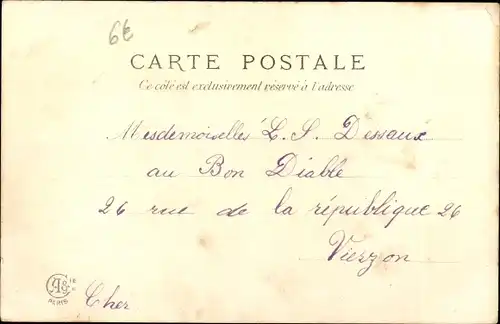 6t
CARTE POSTALE
Ce côté est exclusivement réservé à l'adresse
Mesdemoiselles L. S. Dessaux
au Bon Diable
26 rue de la république 26
Vierzon
PARIS
Cher